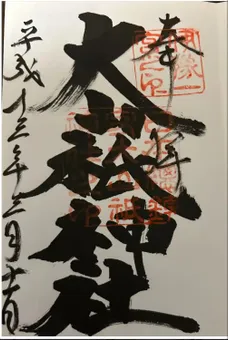 奉拝
大山祇神社
平成十三年三月十一日